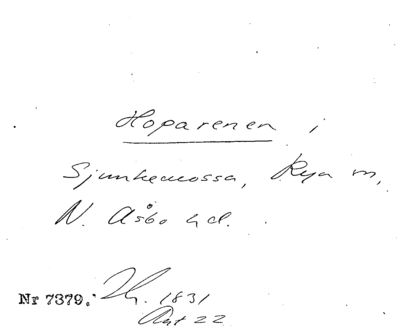 Hoparenen i
Sjunkemossa, Rya sn,
N. Åsbo hd.
Nr 7379. 1831
22